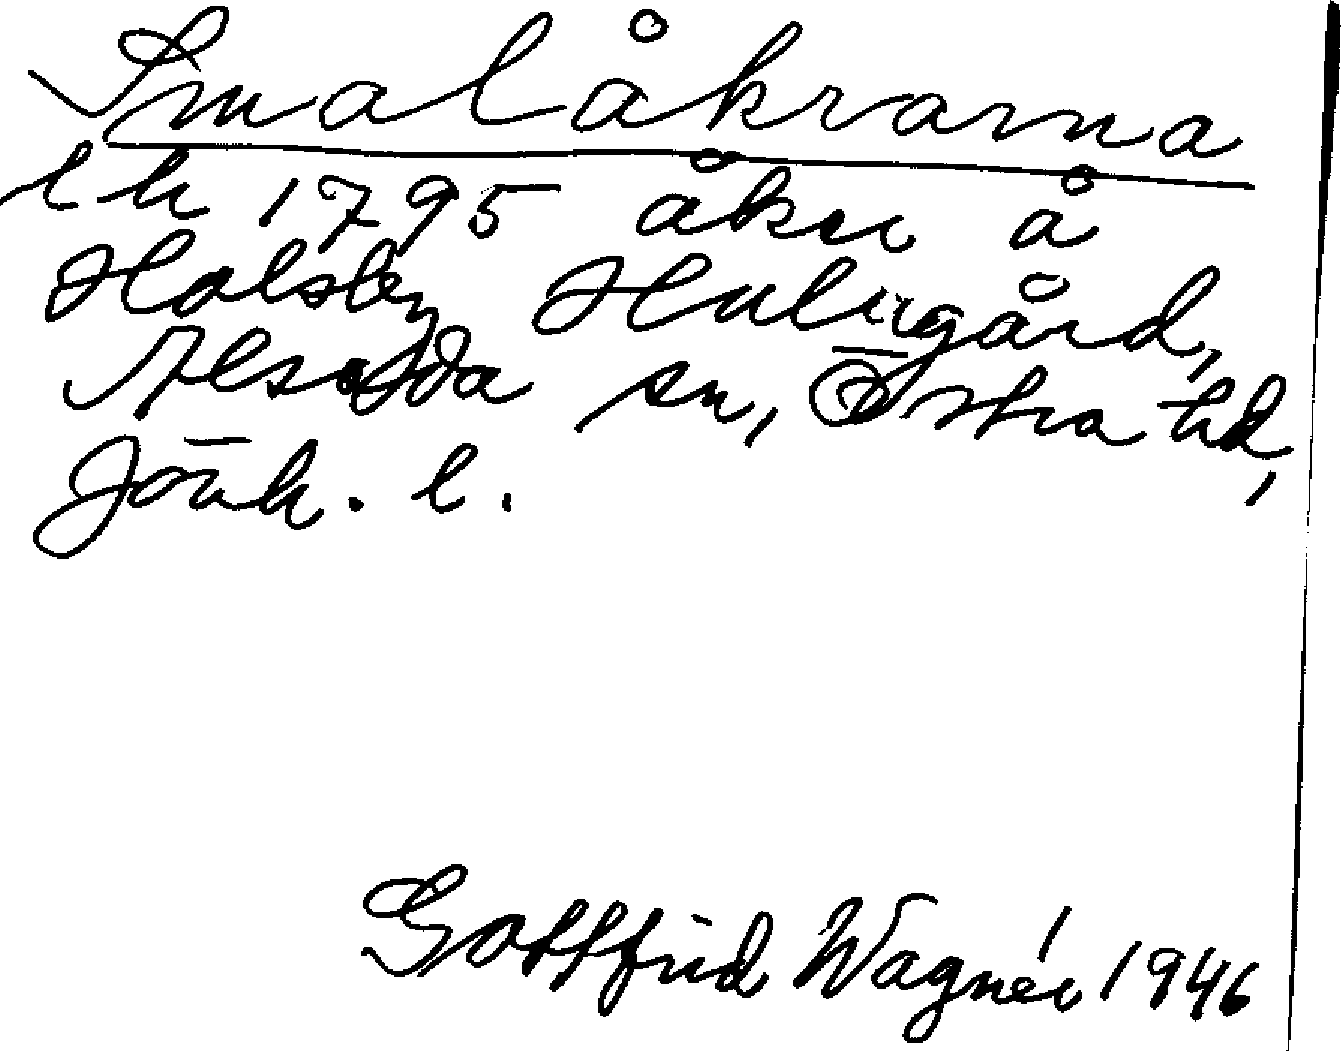 Smalåkrarna
l h 1795 åker å
Holsby Hultsgård,
Alseda sn, Östra hd,
Jönk. l.
Gottfrid Wagnér 1946